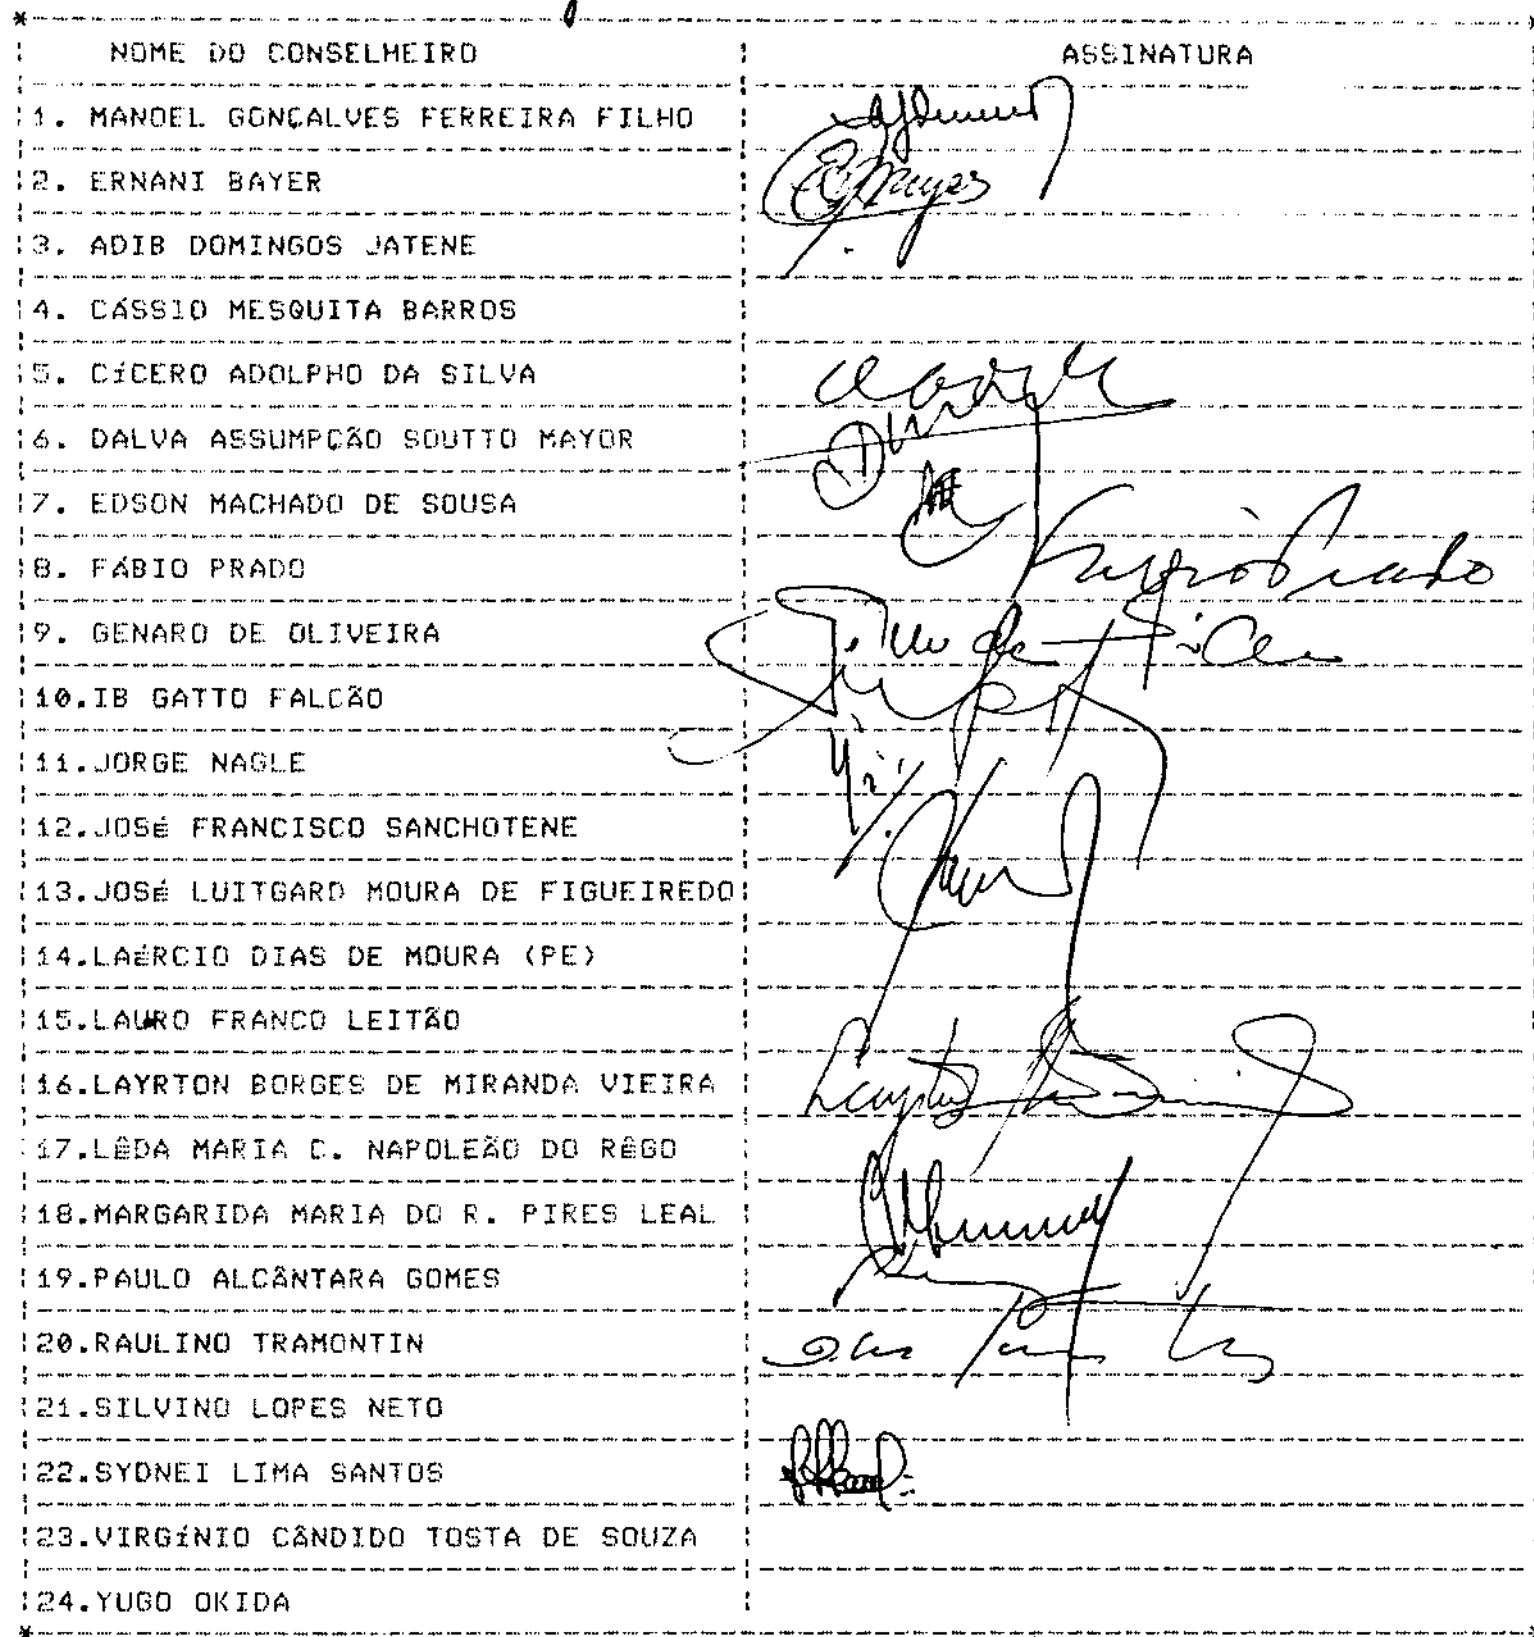 NOME DO CONSELHEIRO ASSINATURA
1. MANOEL GONÇALVES FERREIRA FILHO
2. ERNANI BAYER
3. ADIB DOMINGOS JATENE
4. CÁSSIO MESQUITA BARROS
5. CÍCERO ADOLPHO DA SILVA
6. DALVA ASSUMPÇÃO SOUTTO MAYOR
7. EDSON MACHADO DE SOUSA
8. FÁBIO PRADO
9. GENARO DE OLIVEIRA
10.IB GATTO FALCÃO
11.JORGE NAGLE
12.JOSÉ FRANCISCO SANCHOTENE
13.JOSÉ LUITGARD MOURA DE FIGUEIREDO
14.LAÉRCIO DIAS DE MOURA (PE)
15.LAURO FRANCO LEITÃO
16.LAYRTON BORGES DE MIRANDA VIEIRA
17.LÊDA MARIA C. NAPOLEÃO DO RÊGO
18.MARGARIDA MARIA DO R. PIRES LEAL
19.PAULO ALCÂNTARA GOMES
20.RAULINO TRAMONTIN
21.SILVINO LOPES NETO
22.SYDNEI LIMA SANTOS
23.VIRGÍNIO CÂNDIDO TOSTA DE SOUZA
24.YUGO OKIDA